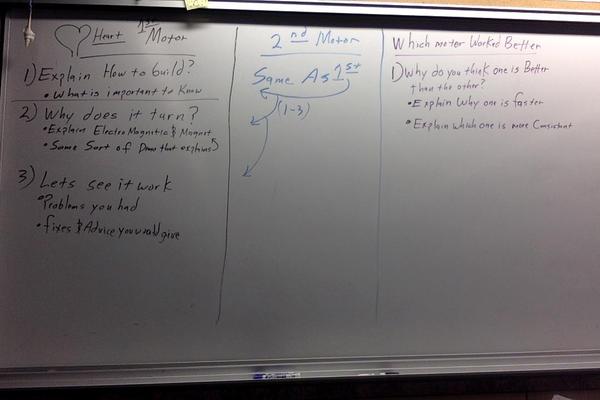 Heart 1st Motor
1) Explain How to build?
• What is important to Know
2) Why does it turn?
• Explain ElectroMagnetic & Magnet
• Some Sort of Draw that explains
3) Lets see it work
• Problems you had
• fixes & Advice you would give
2nd Motor
Same As 1st
(1-3)
Which moter Worked Better
1) Why do you think one is Better
than the other?
• Explain Why one is faster
• Explain which one is more Consistant